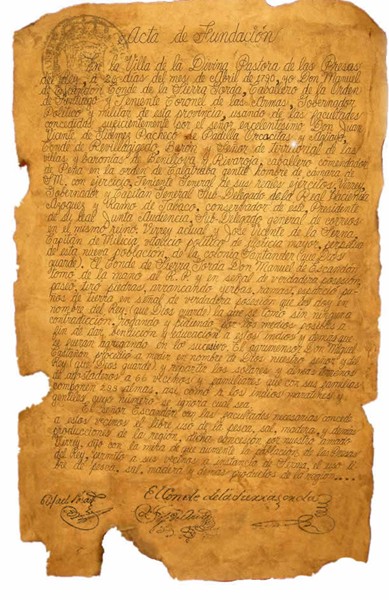 Acta de Fundación
En la Villa de la Divina Pastora de las Presas
del Rey, a 26 días del mes de Abril de 1790, yo Don Manuel
de Escandón Conde de la Sierra Gorda, Caballero de la Orden
de Santiago y Teniente Coronel de las Armas, Gobernador
Político y militar de esta provincia, usando de las facultades
concedidas por el señor excelentísimo Don Juan
Vicente de Güemez Pacheco de Padilla Orcacitas y Aguayo,
Conde de Revillagigedo, Barón y Señor de Territorial de las
villas y baronías de Benillova y Rivaroja, caballero comendador
de Peña en la orden de Calatrava gentil hombre de cámara de
S.M. con ejercicio, Teniente General de sus reales ejércitos, Virrey,
Gobernador y Capitán General Sub Delegado de la Real
Azogues y Ramo de Tabaco, conservador de Presidente
de su Real Junta Audiencia, Sub Delegado general de correos
en el mismo reino. Virrey actual y José Vicente de la Serna,
Capitán de Milicia
de esta nueva población, de la colonia Santander (que Dios
guarde). El Conde de Sierra Gorda Don Manuel de Escandón
tomó de la mano a y en señal de verdadera posesión,
pesió, tiró piedras, arrancando yerbas, ramas, usando pu-
ños de tierra en señal de verdadera posesión que les doy en
nombre del Rey, (que Dios guarde) la que se tomó sin ninguna
contradicción, rogando y pidiendo por los medios posibles a
fin de dar bendición y educación a estos indios y demás que
se vayan agregando en lo sucesivo. El agrimensor Don
procedió a medir en nombre de Dios nuestro señor y del
Rey (que Dios guarde) y repartir los solares y demás terrenos
de agostadero a 66 vecinos y familiares que con sus familias
componen 293 almas, así como a los indios naturales y
gentiles cuyo número se ignora cual sea.
El señor Escandón con las facultades necesarias concede
a estos vecinos el libre uso de la pesca, sal, madera, y demás
producciones de la región, dicha concesión por nuestro amado
Virrey, dijo con la mira de que aumente la población de las Presas
del Rey, permito a sus vecinos a instancia de Serna, el uso li-
bre de pesca, sal, madera y demás productos de la región....
El Conde de la Sierra Gorda